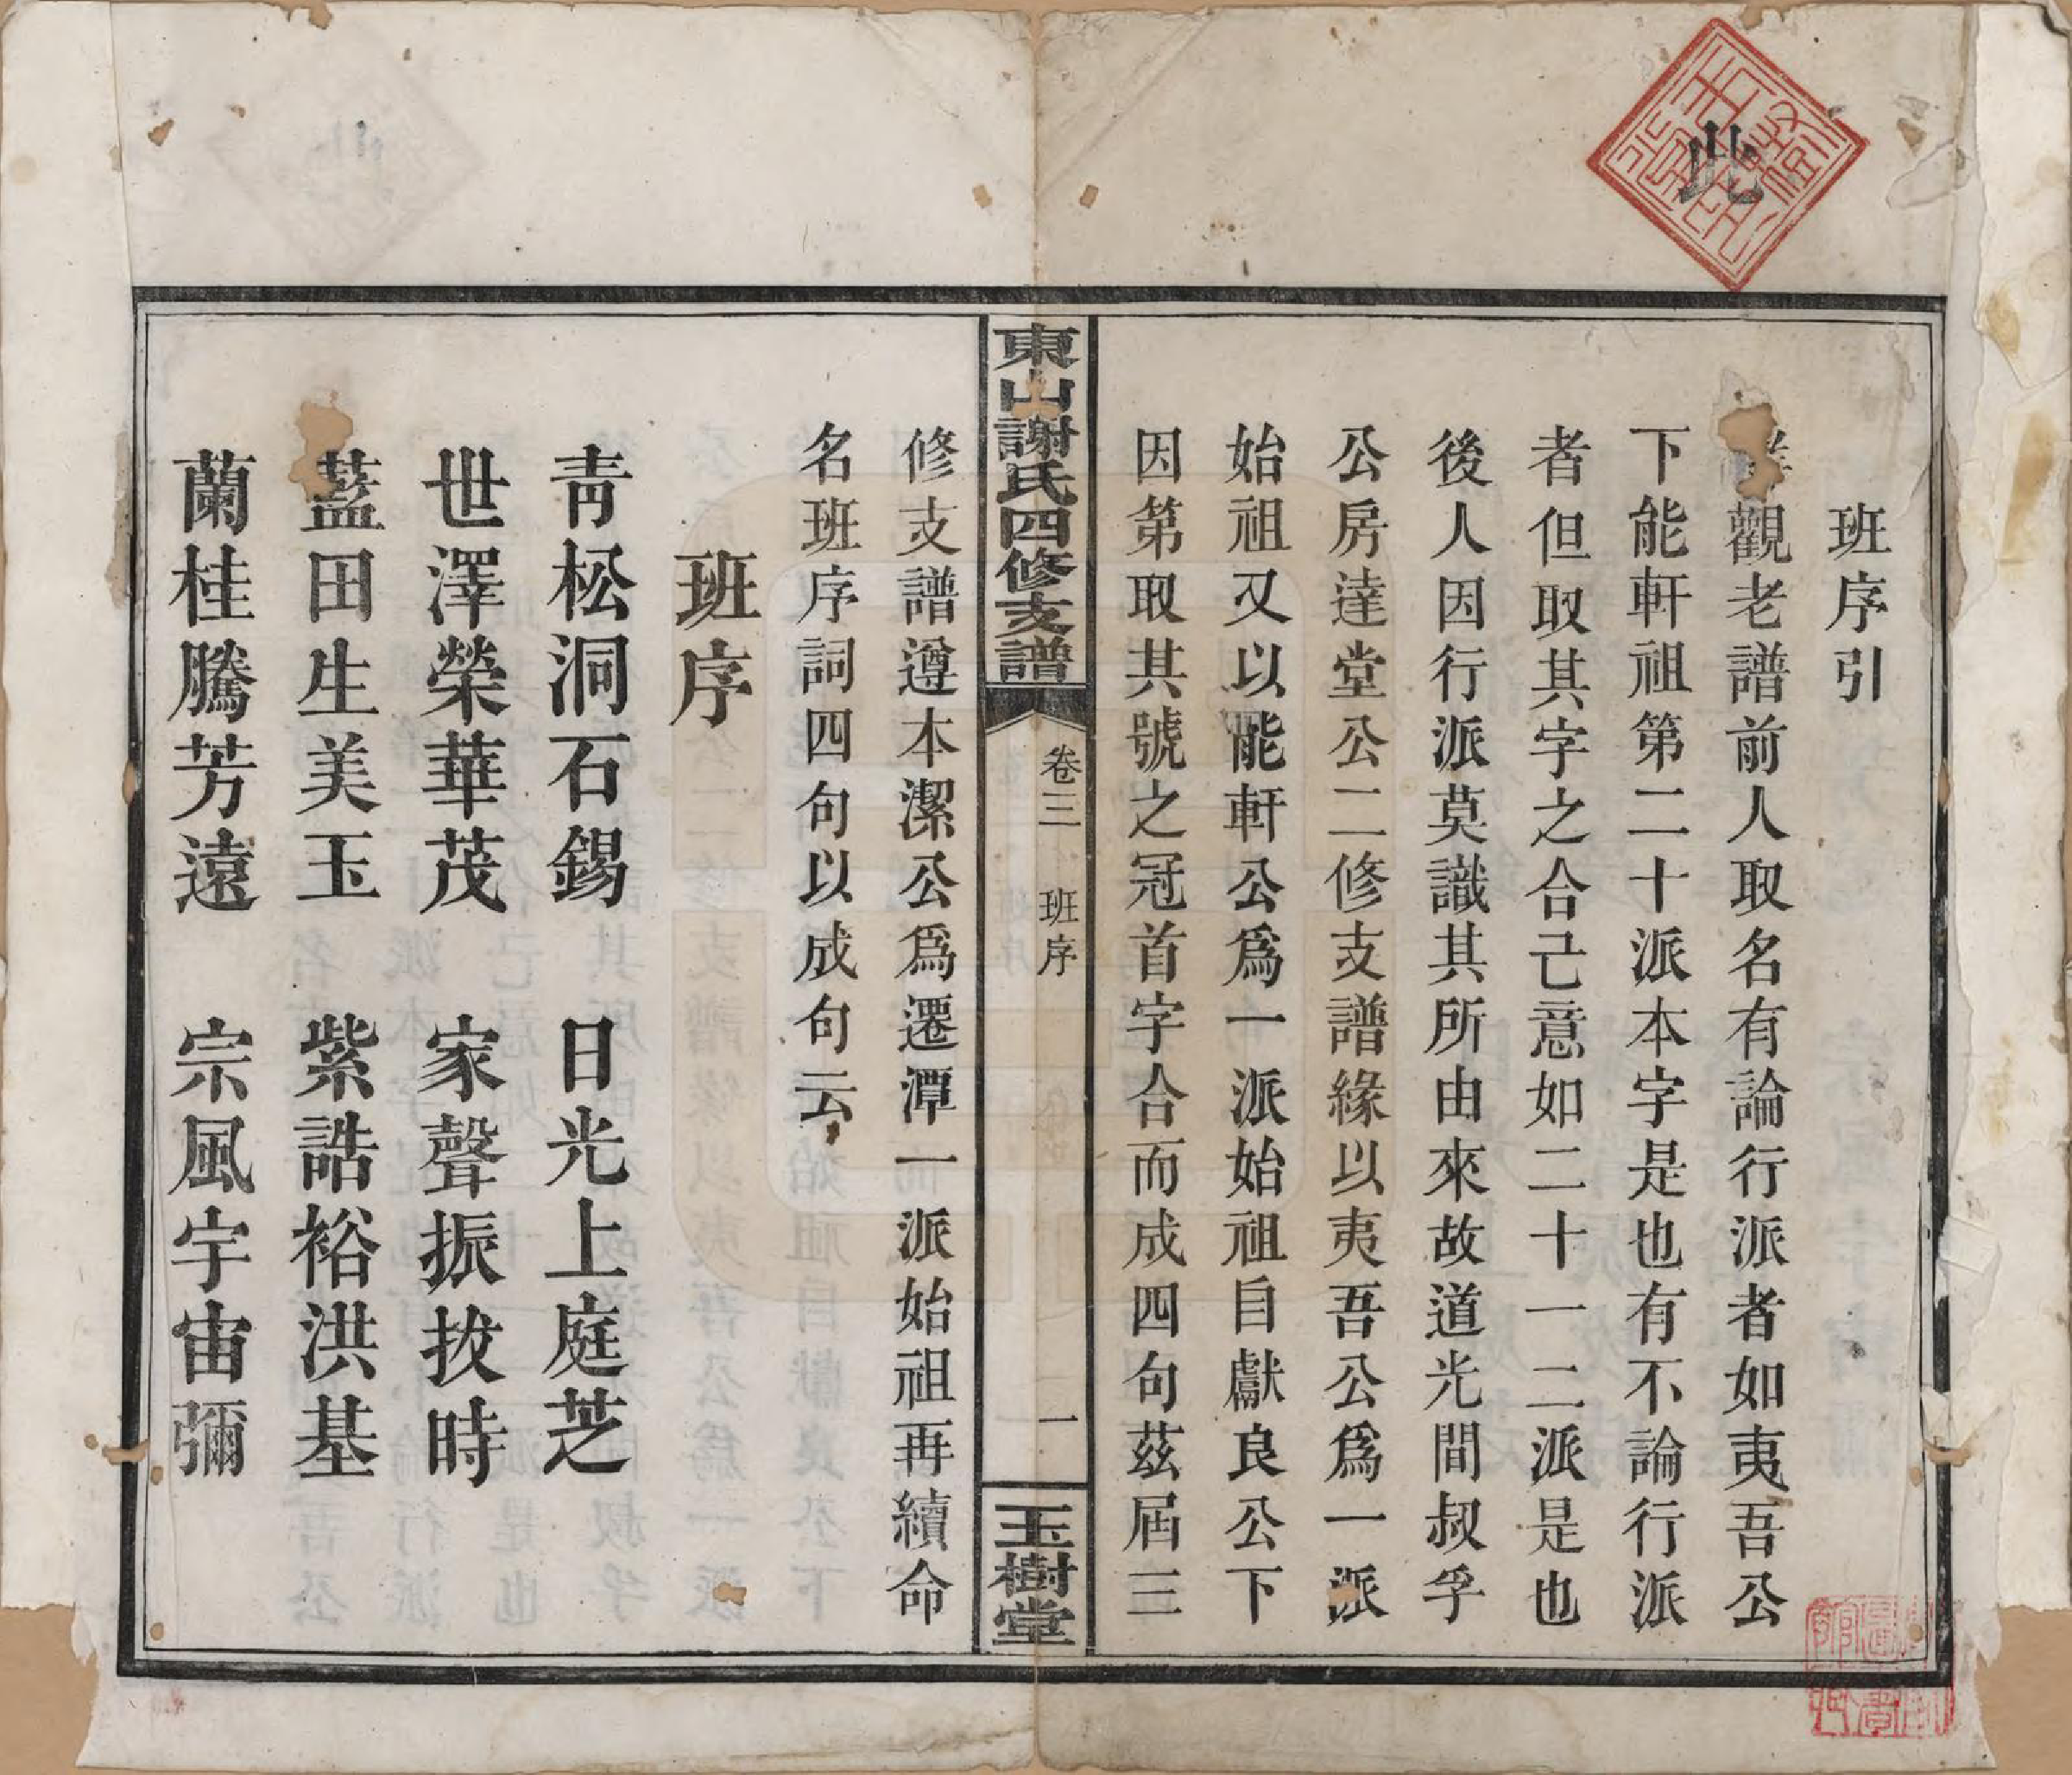 此
班序引
觀老譜前人取名有論行派者如夷吾公
下能軒祖第二十派本字是也有不論行派
者但取其字之合己意如二十一二派是也
後人因行派莫識其所由來故道光間叔孚
公房達堂公二修支譜緣以夷吾公爲一派
始祖又以能軒公爲一派始祖自獻良公下
因第取其號之冠首字合而成四句茲屆三
東山謝氏四修支譜
卷三
班序
一
玉樹堂
修支譜遵本潔公爲遷潭一派始祖再續命
名班序詞四句以成句云
班序
青松洞石錫 日光上庭芝
世澤榮華茂 家聲振拔時
藍田生美玉 紫誥裕洪基
蘭桂騰芳遠 宗風宇宙彌